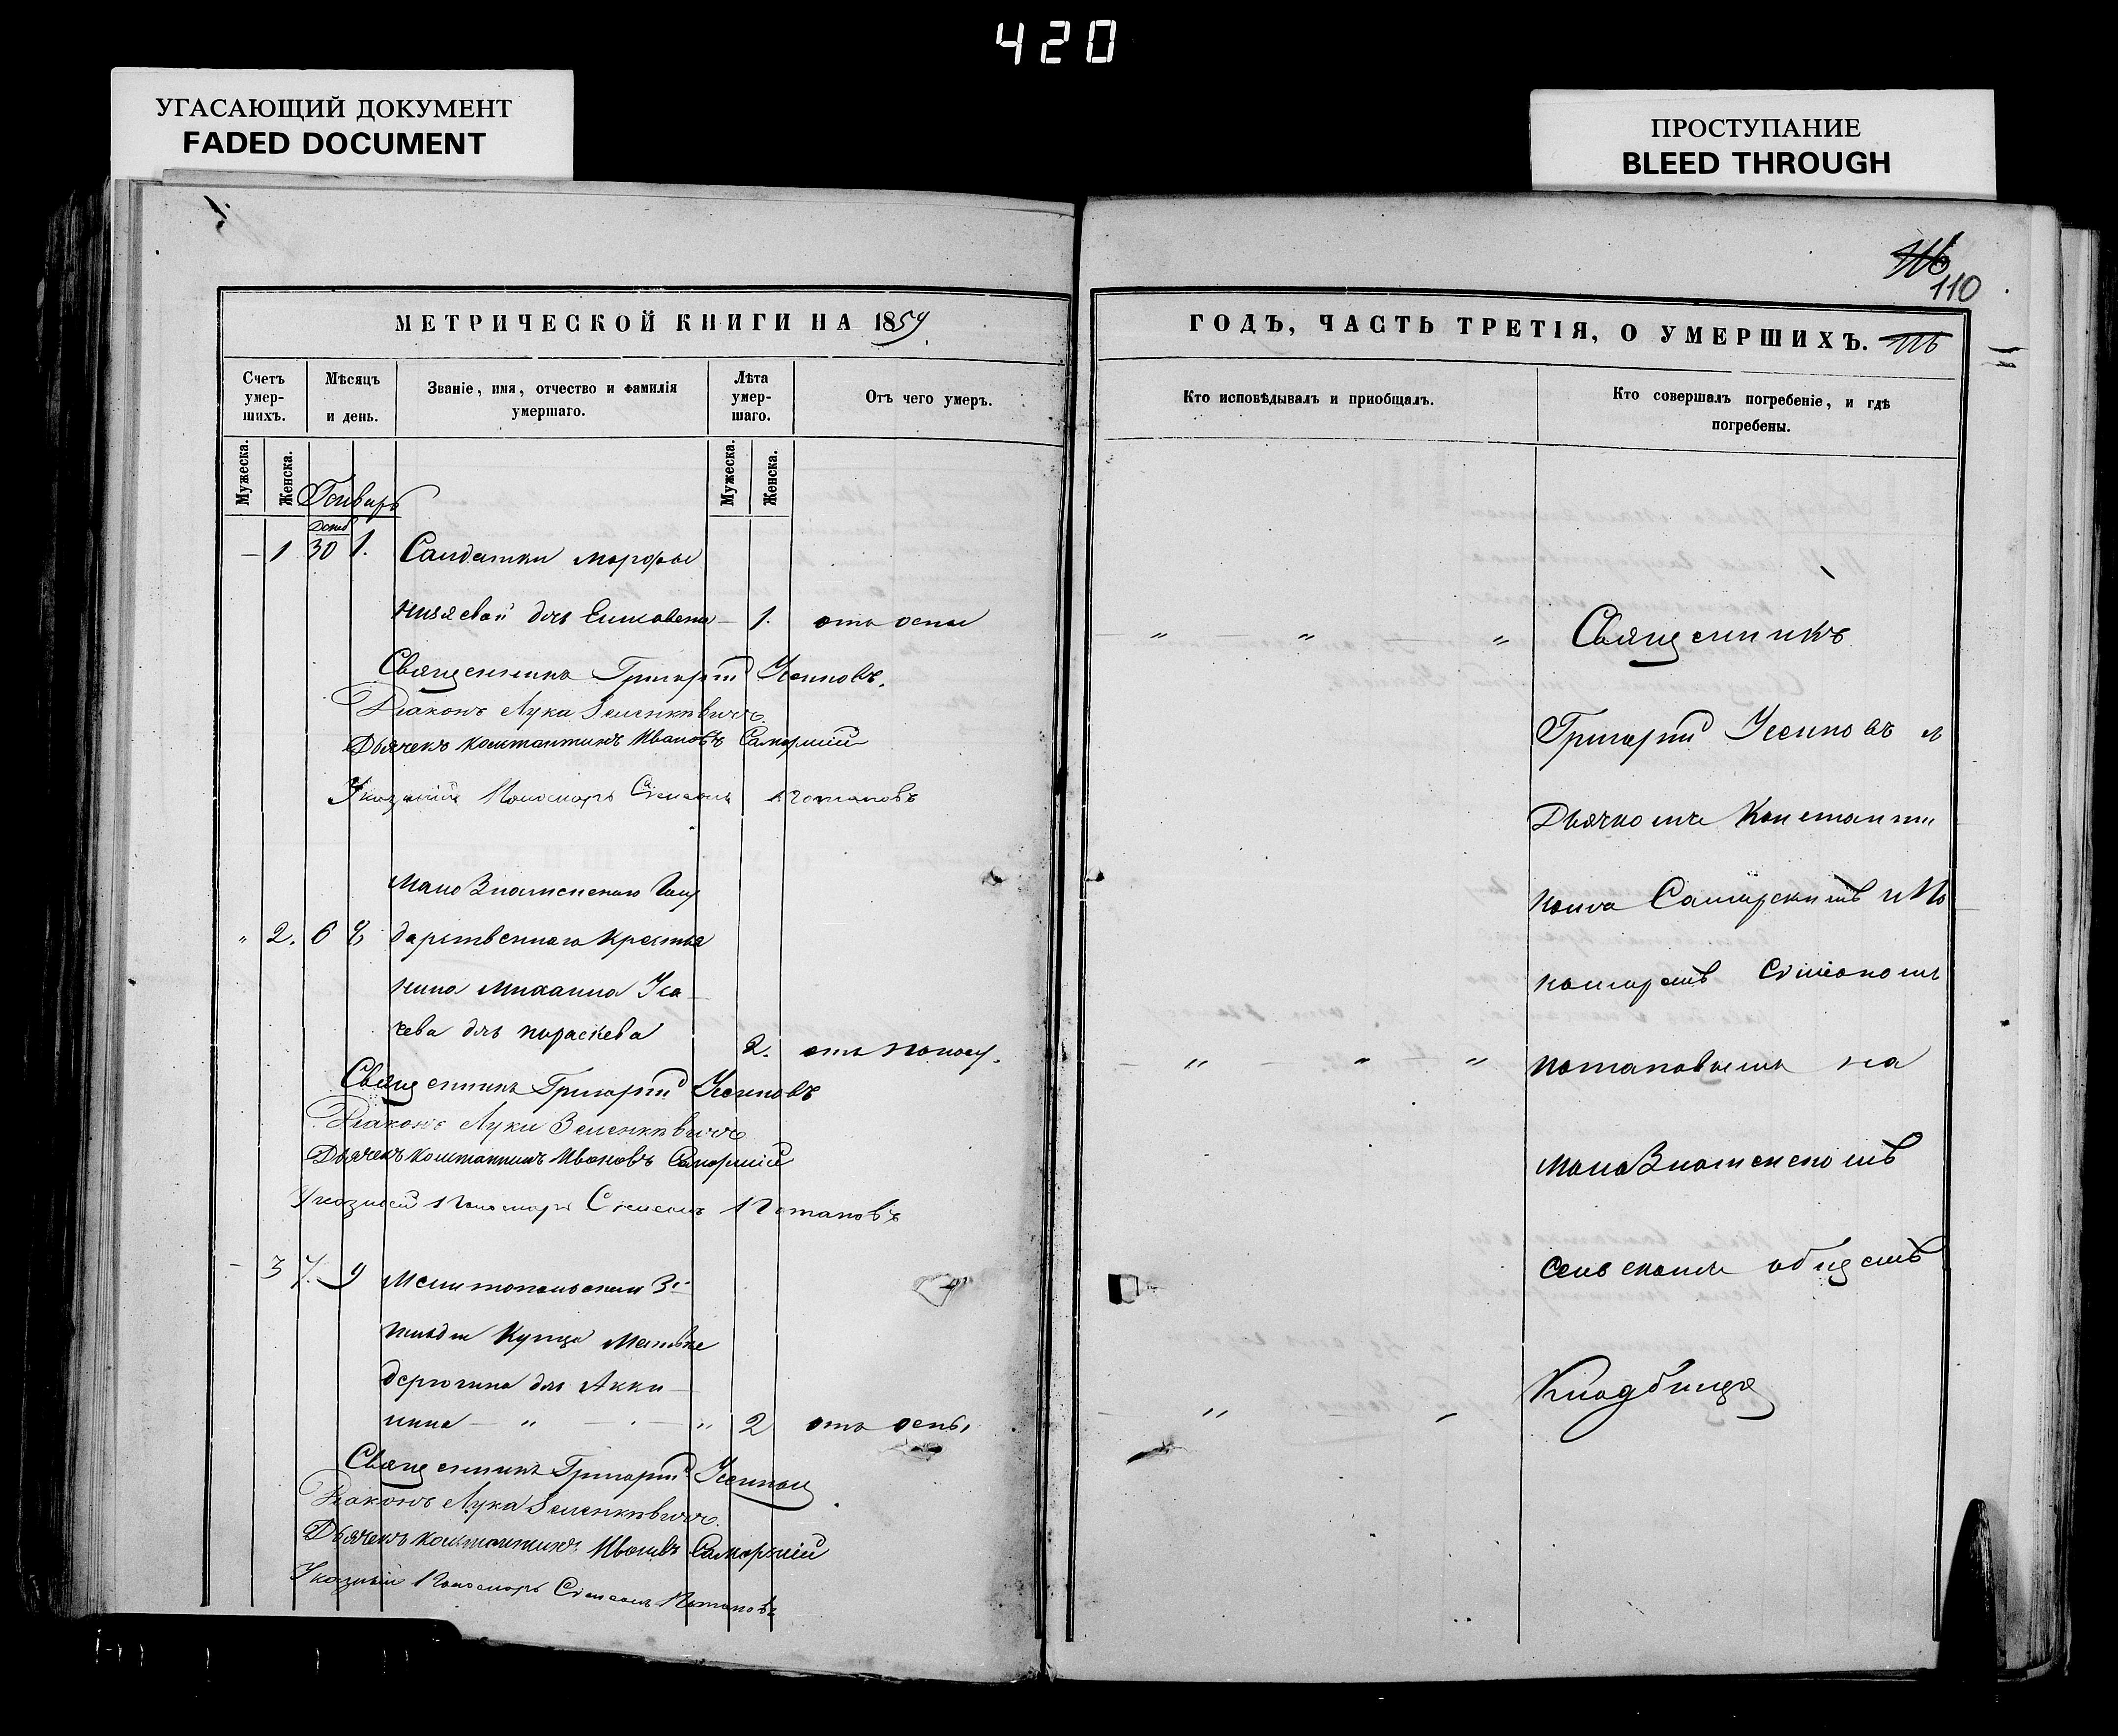 420
УГАСАЮЩИЙ ДОКУМЕНТ
FADED DOCUMENT
ПРОСТУПАНИЕ
BLEED THROUGH
110
МЕТРИЧЕСКОЙ КНИГИ НА 1859
Счетъ умер-шихъ.
Мѣсяцъ и день.
Званіе, имя, отчество и фамилія умершаго.
Лѣта умер-шаго.
Отъ чего умеръ.
Мужеска.
Женска.
Мужеска.
Женска.
Генварь
— 1 30 1. Салдатки Марфы
дочь Елисавета — 1. отъ оспы
Священникъ Григорій Усиновъ.
Діаконъ Лука Зеленкѣвичъ
Дьячекъ Константинъ Ивановъ Самарскій
Указный Пономарь Симеонъ Потаповъ
МалоЗнаменскаго Госу
„ 2. 6 8 дарственнаго крестья
нина Михаила
чева дочь Параскева
2. отъ поносу.
Священникъ Григорій Усиновъ
Діаконъ Лука Зеленкѣвичъ
Дьячекъ Константинъ Ивановъ Самарскій
Указный Пономарь Симеонъ Потаповъ
— 3 7. 9 Мелитопольскій 3й
гильдіи Купца Матвѣя
Дерюгина дочь Аки
лина — „ — „ 2 отъ оспы
Священникъ Григорій Усиновъ
Діаконъ Лука Зеленкѣвичъ
Дьячекъ Константинъ Ивановъ Самарскій
Указный Пономарь Симеонъ Потаповъ
ГОДЪ, ЧАСТЬ ТРЕТІЯ, О УМЕРШИХЪ.
Кто исповѣдывалъ и приобщалъ.
Кто совершалъ погребеніе, и гдѣ погребены.
„ — „ — „ Священникъ
Григорій Усиновъ съ
Дьячкомъ Константи
номъ Самарскимъ и По
номаремъ Симеономъ
— „ — „ — „ Потаповымъ на
МалоЗнаменскомъ
сельскомъ общемъ
Кладбищѣ